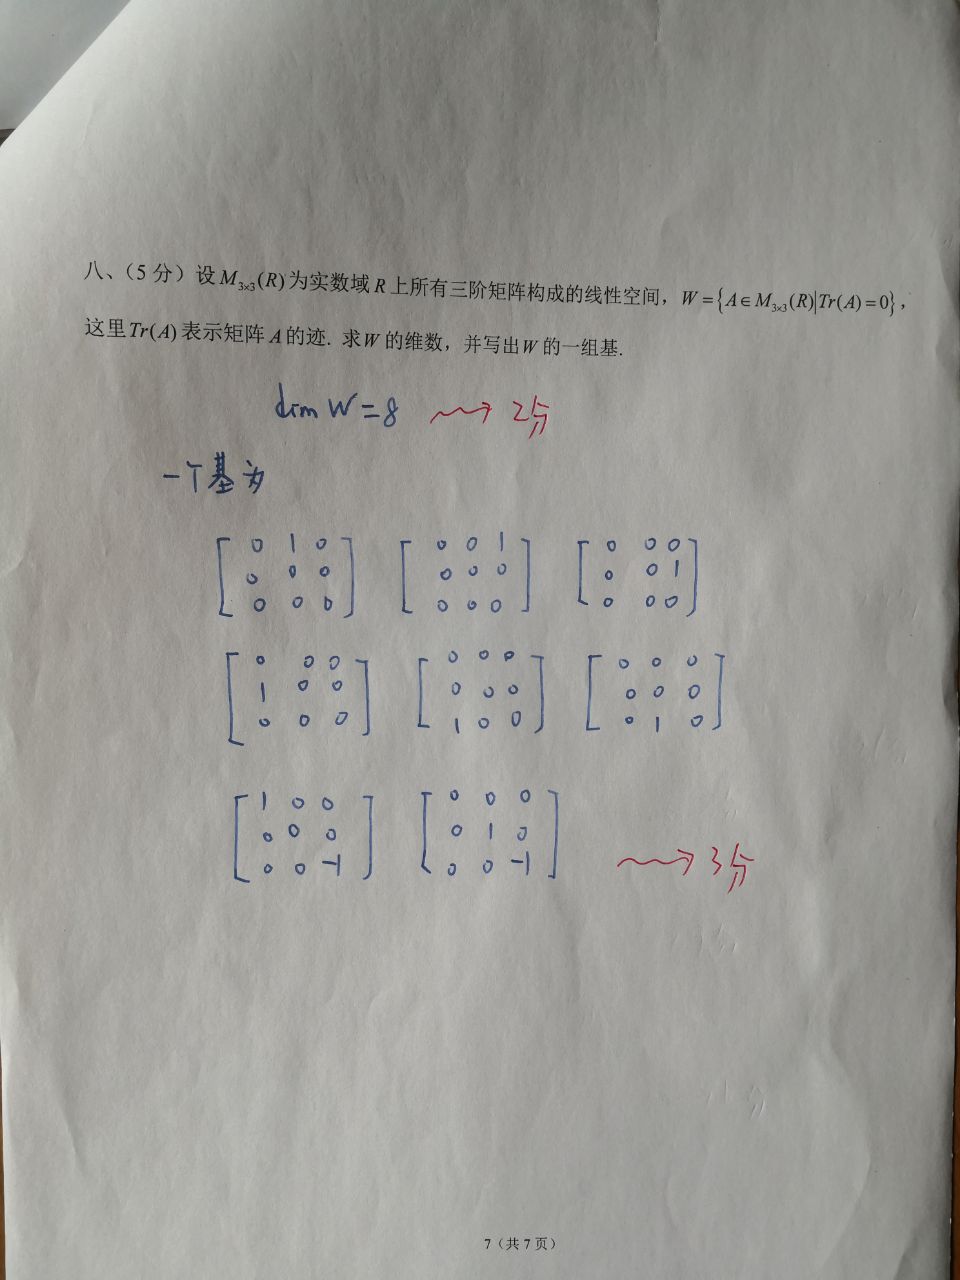 八、（5 分）设 M₃ₓ₃(R) 为实数域 R 上所有三阶矩阵构成的线性空间，W = {A ∈ M₃ₓ₃(R)|Tr(A) = 0}，
这里 Tr(A) 表示矩阵 A 的迹. 求 W 的维数，并写出 W 的一组基.
dim W = 8 → 2分
一个基为
[0 1 0] [0 0 1] [0 0 0]
[0 0 0] [0 0 0] [0 0 1]
[0 0 0] [0 0 0] [0 0 0]
[0 0 0] [0 0 0] [0 0 0]
[1 0 0] [0 0 0] [0 0 0]
[0 0 0] [1 0 0] [0 1 0]
[1 0 0] [0 0 0]
[0 0 0] [0 1 0]
[0 0 -1] [0 0 -1] → 3分
7（共 7 页）